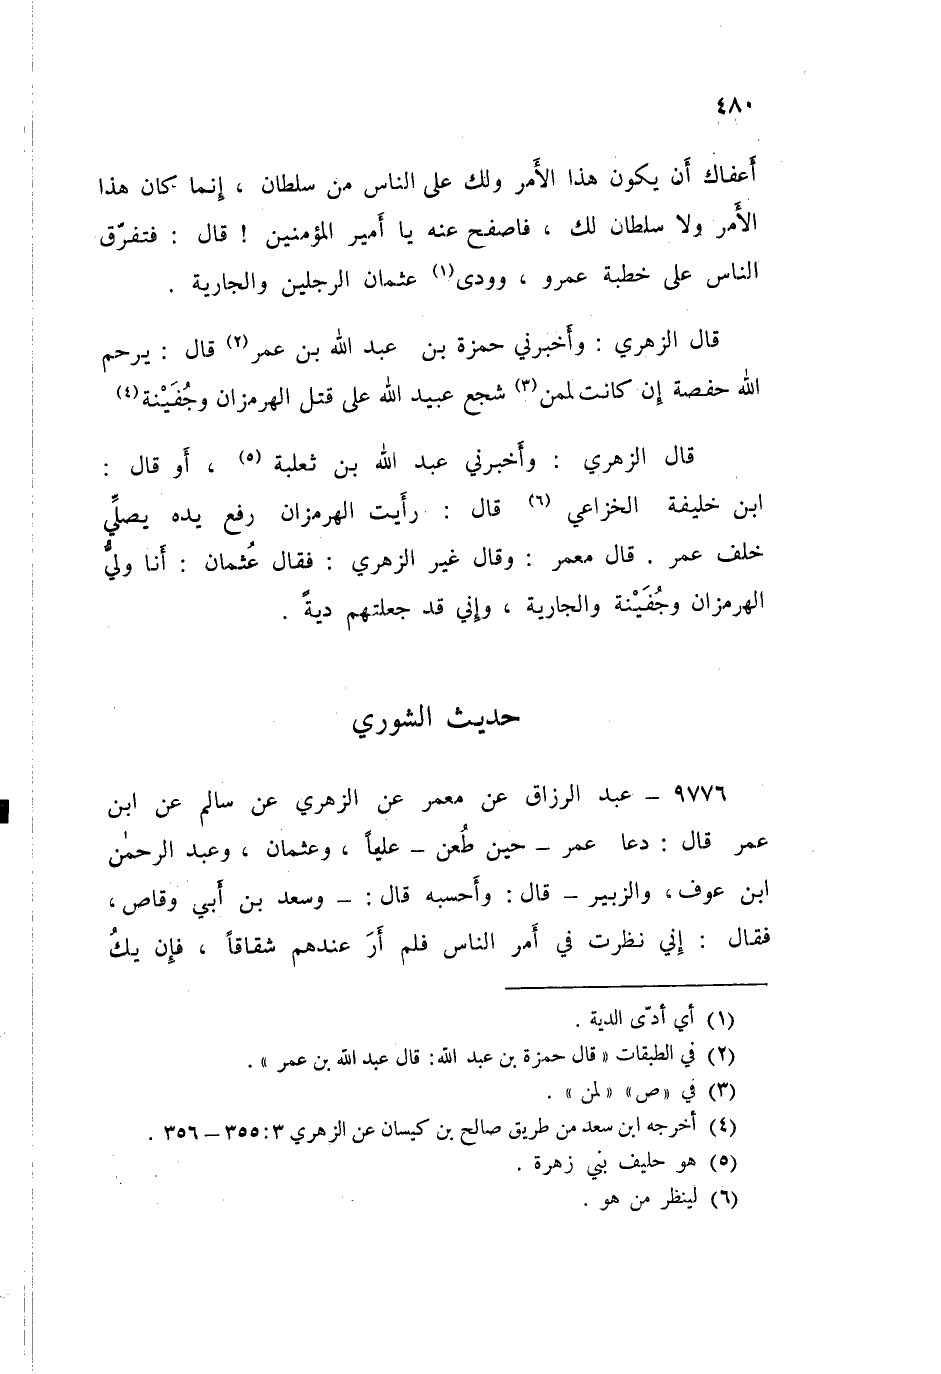 ٤٨٠
أَعفاك أَن يكون هذا الأَمر ولك على الناس من سلطان ، إِنما كان هذا
الأَمر ولا سلطان لك ، فاصفح عنه يا أَمير المؤمنين ! قال : فتفرّق
الناس على خطبة عمرو ، وودى(١) عثمان الرجلين والجارية .
قال الزهري : وأَخبرني حمزة بن عبد الله بن عمر(٢) قال : يرحم
الله حفصة إِن كانت لممن(٣) شجع عبيد الله على قتل الهرمزان وجُفَيْنة(٤)
قال الزهري : وأَخبرني عبد الله بن ثعلبة (٥) ، أَو قال :
ابن خليفة الخزاعي (٦) قال : رأَيت الهرمزان رفع يده يصلِّي
خلف عمر . قال معمر : وقال غير الزهري : فقال عُثمان : أَنا وليُّ
الهرمزان وجُفَيْنة والجارية ، وإِني قد جعلتهم ديةً .
حديث الشوري
٩٧٧٦ – عبد الرزاق عن معمر عن الزهري عن سالم عن ابن
عمر قال : دعا عمر – حين طُعن – علياً ، وعثمان ، وعبد الرحمٰن
ابن عوف ، والزبير – قال : وأَحسبه قال : – وسعد بن أَبي وقاص ،
فقال : إِني نظرت في أَمر الناس فلم أَرَ عندهم شقاقاً ، فإِن يكُ
(١) أي أدّى الدية .
(٢) في الطبقات « قال حمزة بن عبد الله : قال عبد الله بن عمر » .
(٣) في «ص» « لمن » .
(٤) أخرجه ابن سعد من طريق صالح بن كيسان عن الزهري ٣ : ٣٥٥ – ٣٥٦ .
(٥) هو حليف بني زهرة .
(٦) لينظر من هو .